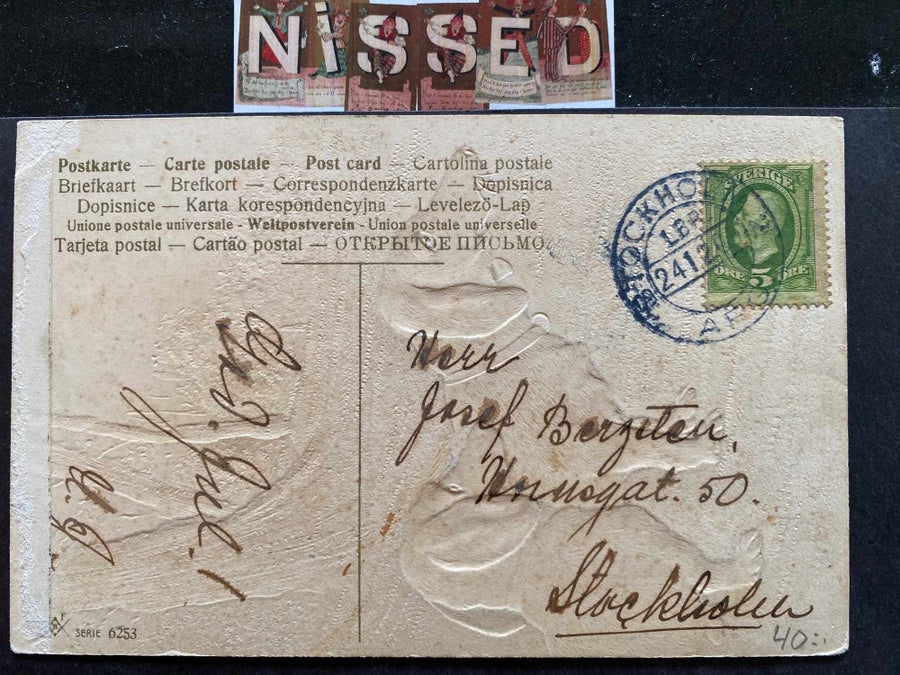 NiSSED
Postkarte — Carte postale — Post card — Cartolina postale
Briefkaart — Brefkort — Correspondenzkarte — Dopisnica
Dopisnice — Karta korespondencyjna — Levelező-Lap
Unione postale universale - Weltpostverein - Union postale universelle
Tarjeta postal — Cartão postal — ОТКРЫТОЕ ПИСЬМО.
SVERIGE
ÖRE 5 ÖRE
STOCKHOL
LBR
24.12
Jul!
Herr
Josef Bergsten,
Hornsgat. 50.
Stockholm
40:-
SERIE 6253